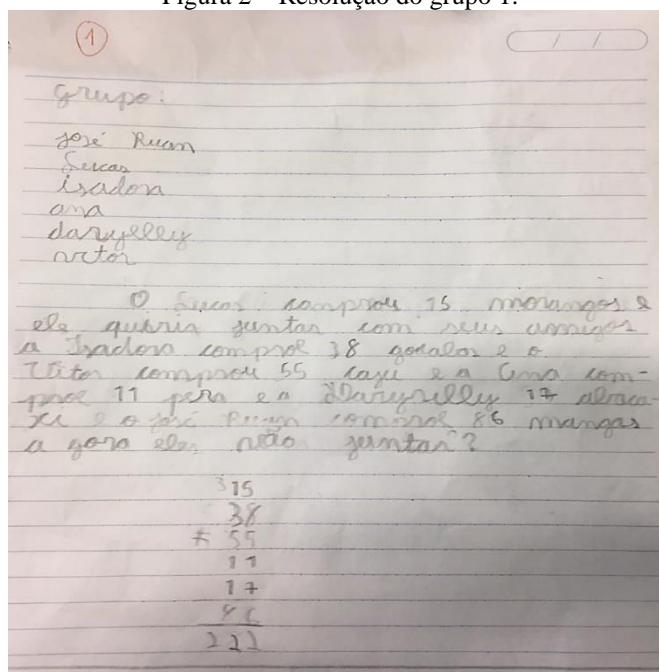 Figura 2 – Resolução do grupo 1.
1
/ /
Grupo:
José Ruan
Lucas
isadora
ana
daryelley
victor
O Lucas comprou 15 morangos e
ele queria juntar com seus amigos
a Isadora comproe 38 goiabas e o
Vitor comprou 55 caju e a Ana com-
proe 11 pera e a 17 abaca-
xi e o José Ruan comproe 86 mangas
a gora eles vão juntar?
3
15
38
+ 55
11
17
86
222